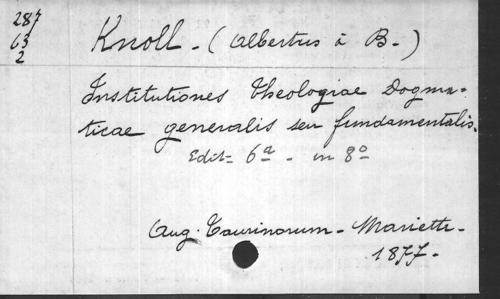 287
63
2
Knoll - (Albertus à B-)
Institutiones Theologiae Dogma-
ticae generalis seu fundamentalis.
Edit= 6ª - in 8º
Aug. Taurinorum - Marietti -
1877-